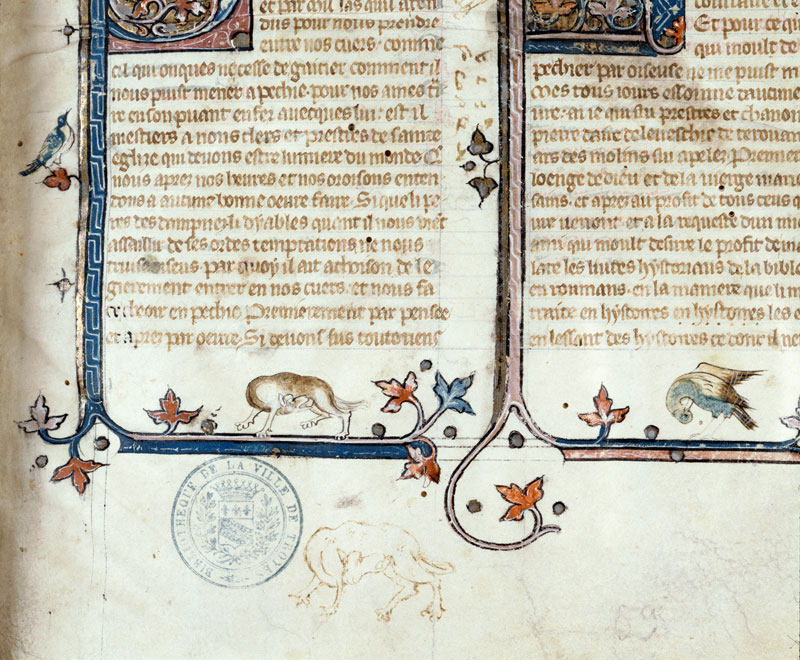 et par
dons pour nous prendre
entre nos cuers comme
cil qui onques ne cesse de gaitier comment il
nous puist mener a pechie pour nos ames ti
re en son puant enfer avecques lui est il
mestiers a nous clers et prestres de sainte
eglize qui devons estre lumiere du monde
nous apres nos heures et nos oroisons enten
dons a aucune bonne oeuvre faire Si que li
des dyables quant il nous vient
assaillir de ses ordes temptations ne nous
truist par quoy il ait achoison de le
gierement entrer en nos cuers et nous fa
ce cheoir en pechie Premierement par pensee
et apres par oeuvre Si devons sus toutes riens
Et pour ce q
qui moult de
pechier par oiseuse ne me puist
tous iours essoinne daucune
ie qui sui prestres et chanoi
pierre daire de leveschie de terouan
ars des molins sui apelez Premier
loenge de dieu et de la vierge mari
sains et apres au profit de tous ceus q
ure venont et a la requeste dun mi
ami qui moult desire le profit de
late les livres hystoriaus de la bible
en roumans en la maniere que li
traite en hystoires en hystoires les
en lessant des hystoires ce dont il ne
BIBLIOTHEQUE DE LA VILLE DE TROY